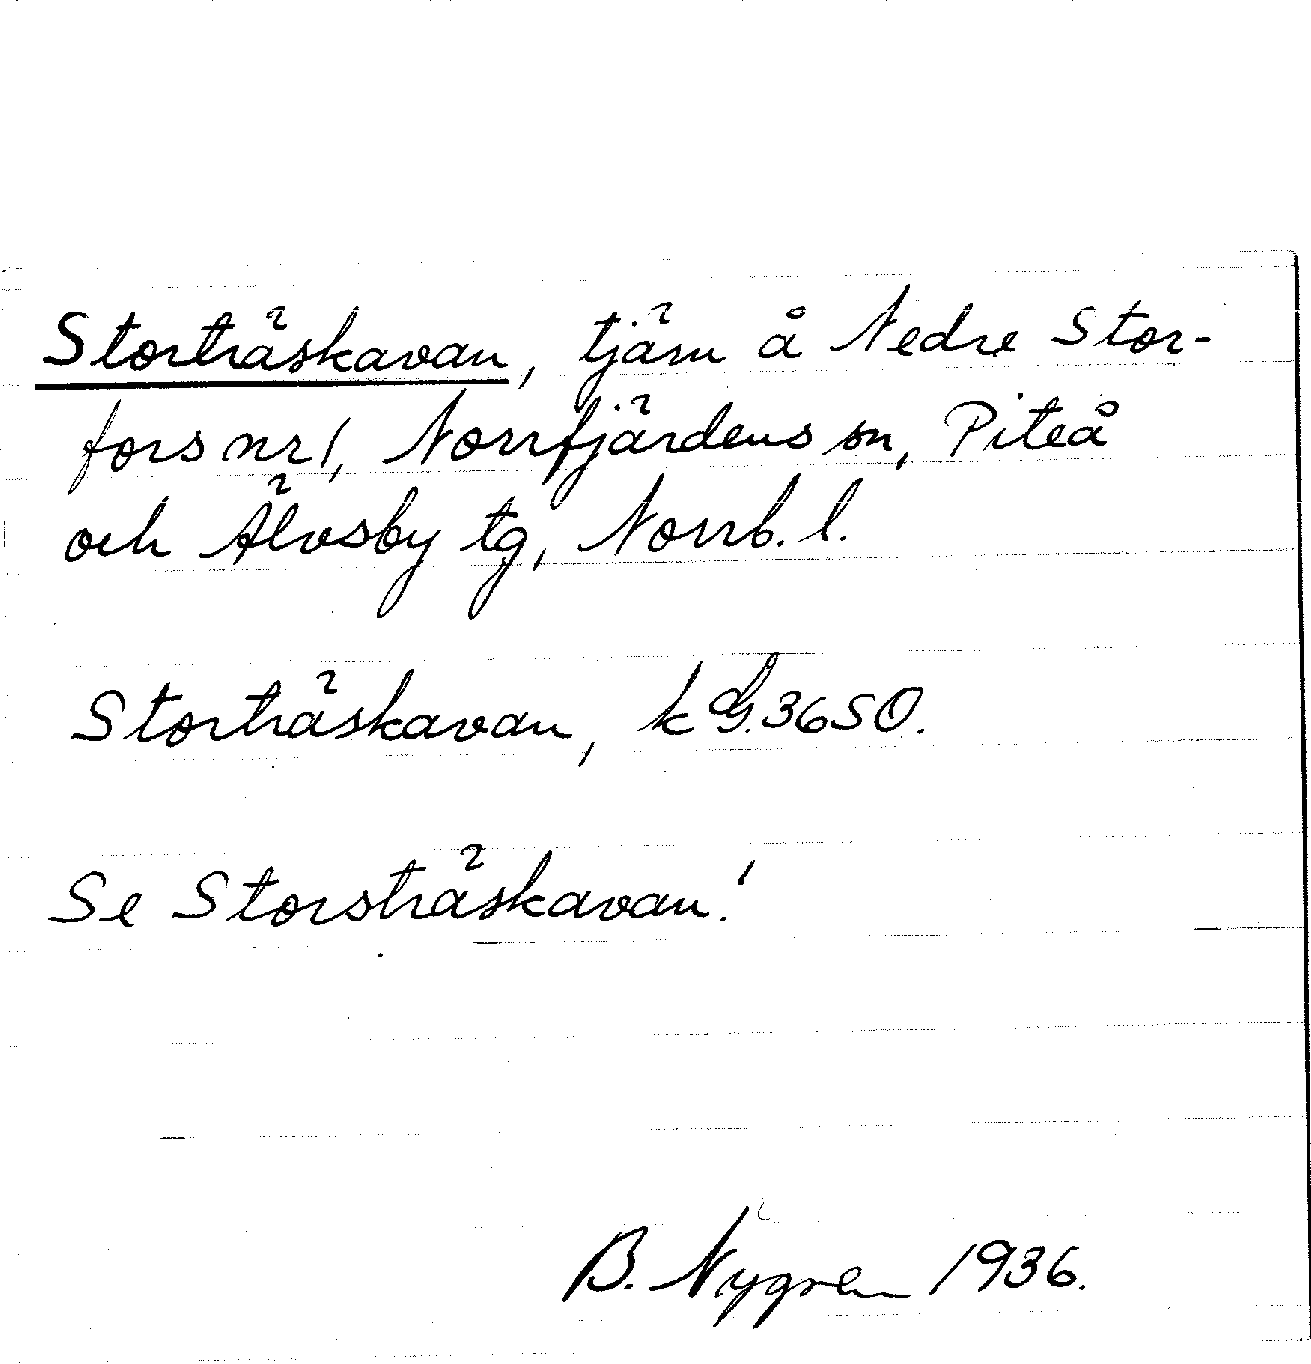 Storträskavan, tjärn å Nedre Stor-
fors nr 1, Norrfjärdens sn, Piteå
och Älvsby tg, Norrb. l.
Storträskavan, k G. 3650.
Se Storsträskavan!
B. Nygren 1936.